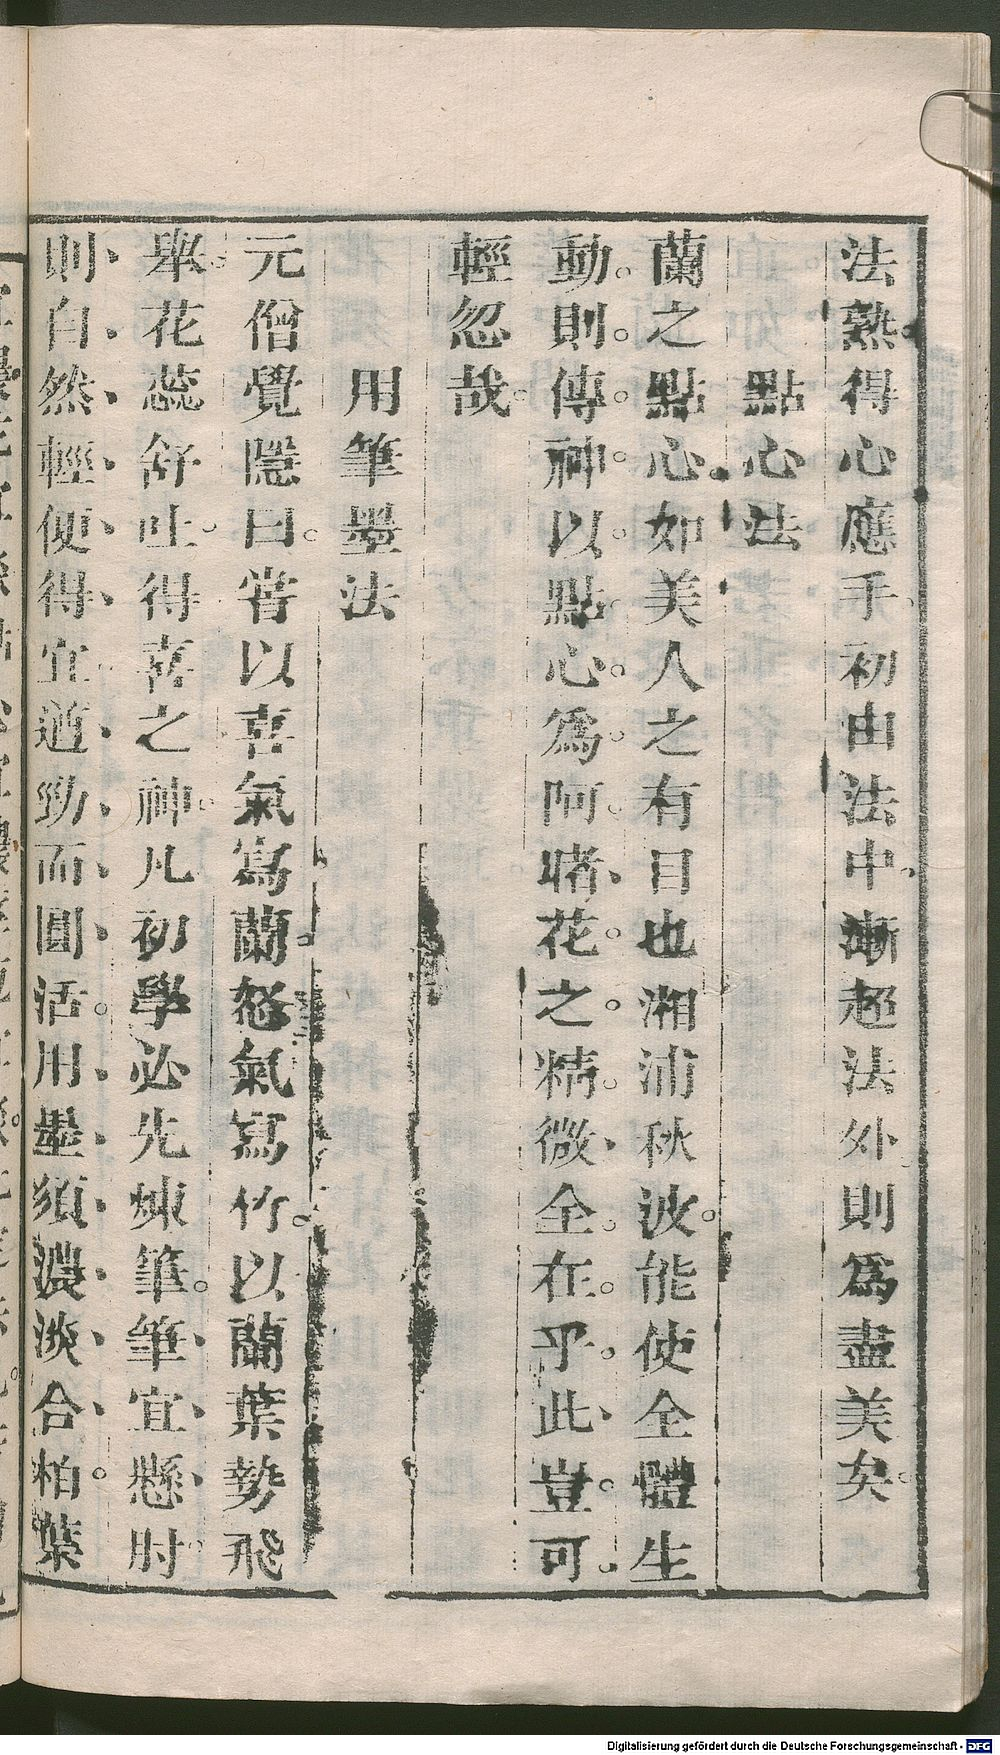 法熟得心應手初由法中漸超法外則為盡美矣。
點心法
蘭之點心如美人之有目也湘浦秋波。能使全體生
動。則。傳。神。以。點。心。為。阿。睹、花。之。精。微、全。在。乎。此、豈。可。
輕忽哉。
用筆墨法
元僧覺隱曰。嘗以喜氣寫蘭。怒氣寫竹。以蘭葉勢飛
舉。花蕊舒吐。得喜之神。凡初學必先煉筆。筆、宜、懸、肘。
則、自、然、輕、便、得、宜、遒、勁、而、圓、活。用、墨、須、濃、淡、合、柏。葉
Digitalisierung gefördert durch die Deutsche Forschungsgemeinschaft - DFG